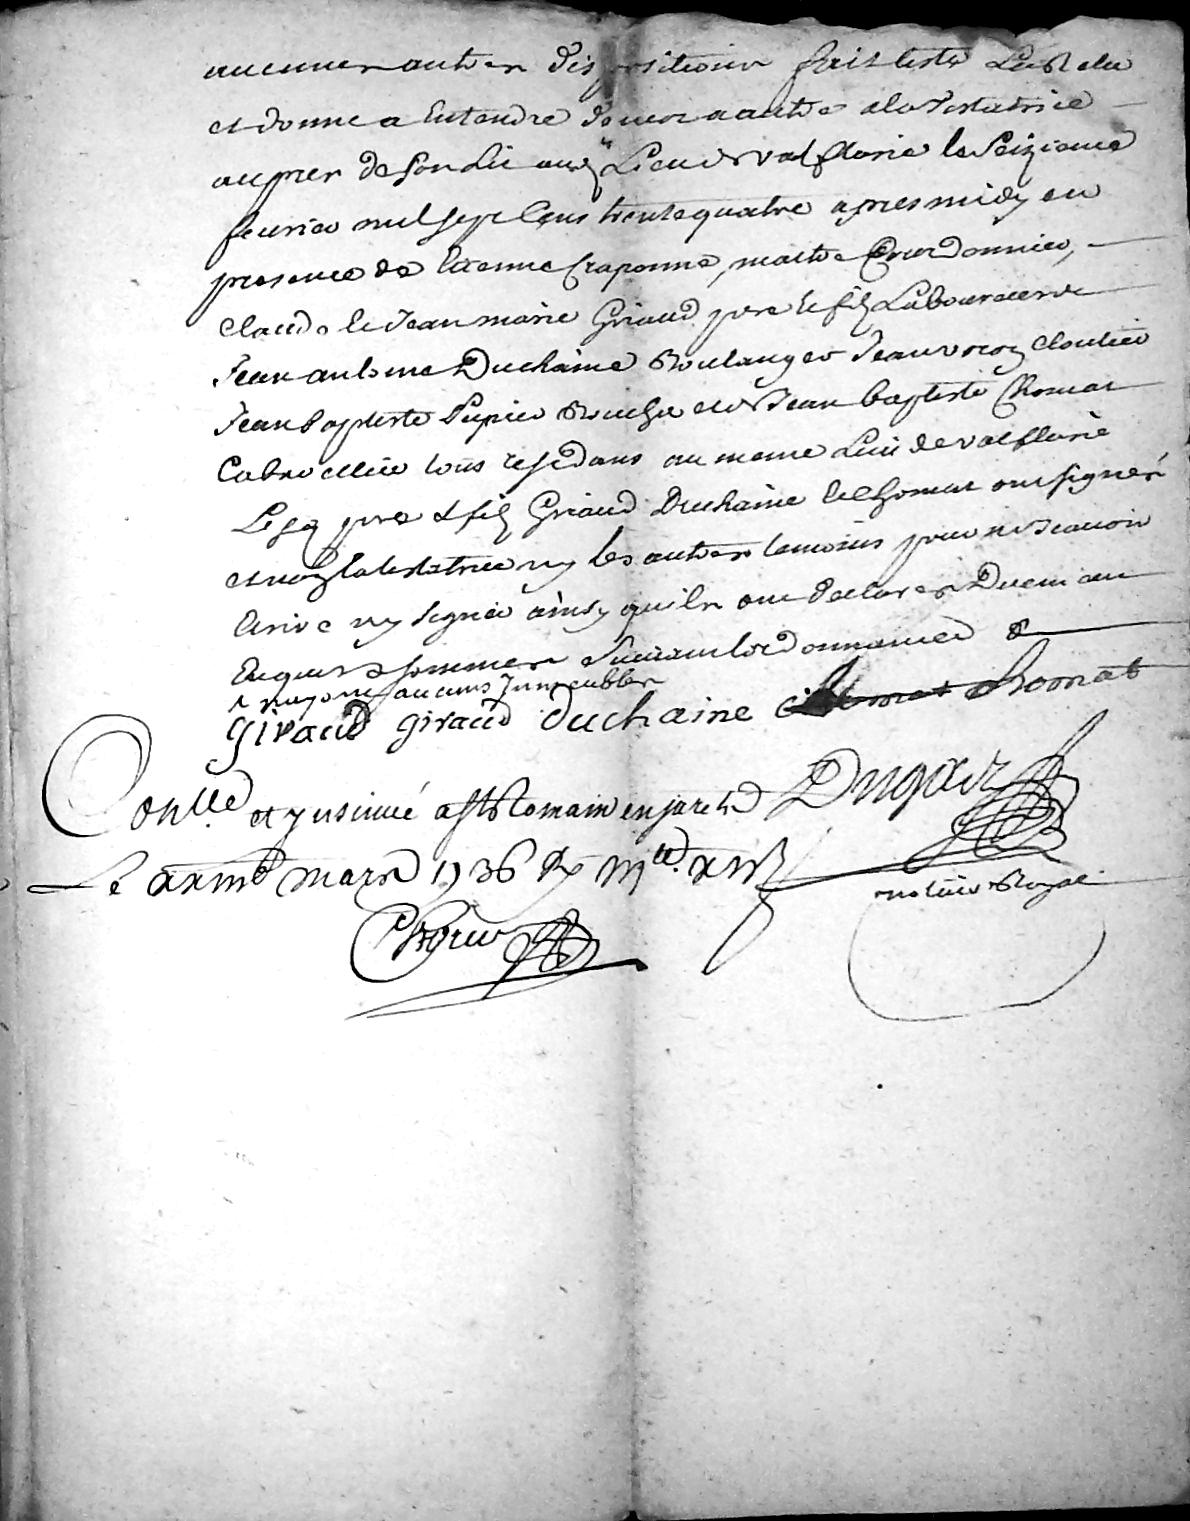 aucunes autres dispositions fait testé Leu Releu
et donné a Entendre de mot a autre a la Testatrice
aupres de son Lit audt Lieu de valfleurie le Seizieme
feuvrier mil sept Cens trente quatre apres midy en
presence de Etienne Craponne, maitre Courdonnier,
claude et Jean marie Giraud pere et fils Laboureurs
Jean antoine Duchaine Boulanger Jean cloutier
Jean baptiste Pupier et Jean baptiste Chomat
Cabrettier tous residans au meme Lieu de valfleurie
Lesq pere & fils Giraud Duchaine et Chomat ont signés
et non la testatrice ny les autres temoins pour ne scavoir
Ecrire ny signer ainsy quils ont declarés Duement
Enquis & sommes suivant lordonnance &
n'ayant aucuns Immeubles
giraud giraud duchaine Chomat
Conllé et ynsinué a St Romain en jarest Dugas
Le mars 1736
notaire Royal